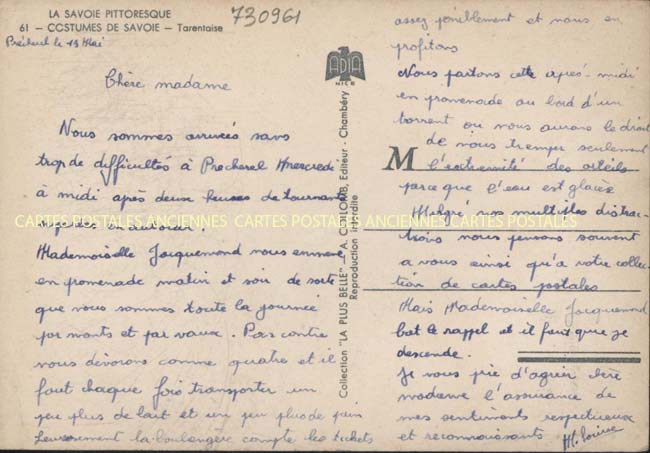 LA SAVOIE PITTORESQUE
61 — COSTUMES DE SAVOIE — Tarentaise
730961
le 19 Mai
Chère madame
Nous sommes arrivés sans
trop de difficultés à Mercredi
à midi après deux heures de tournants
en autocar.
Mademoiselle Jacquemond nous emmene
en promenade matin et soir de sorte
que nous sommes toute la journée
par monts et par vaux. Par contre
nous dévorons comme quatre et il
faut chaque fois transporter un
peu plus de lait et un peu plus de pain
heureusement la boulangère compte les tickets
ADIA
NICE
Collection "LA PLUS BELLE" — A. COLLOMB, Editeur - Chambéry
Reproduction interdite
assez péniblement et nous en
profitons
Nous partons cette après-midi
en promenade au bord d'un
torrent ou nous aurons le droit
de nous tremper seulement
M
l'extremité des orteils
parce que l'eau est glacée
Malgré nos multiples distrac-
tions nous pensons souvent
a vous ainsi qu'a votre collec-
tion de cartes postales
Mais Mademoiselle Jacquemond
bat le rappel et il faut que je
descende.
Je vous prie d'agréer chère
madame l'assurance de
mes sentiments respectueux
et reconnaissants
CARTES POSTALES ANCIENNES CARTES POSTALES ANCIENNES CARTES POSTALES ANCIENNES